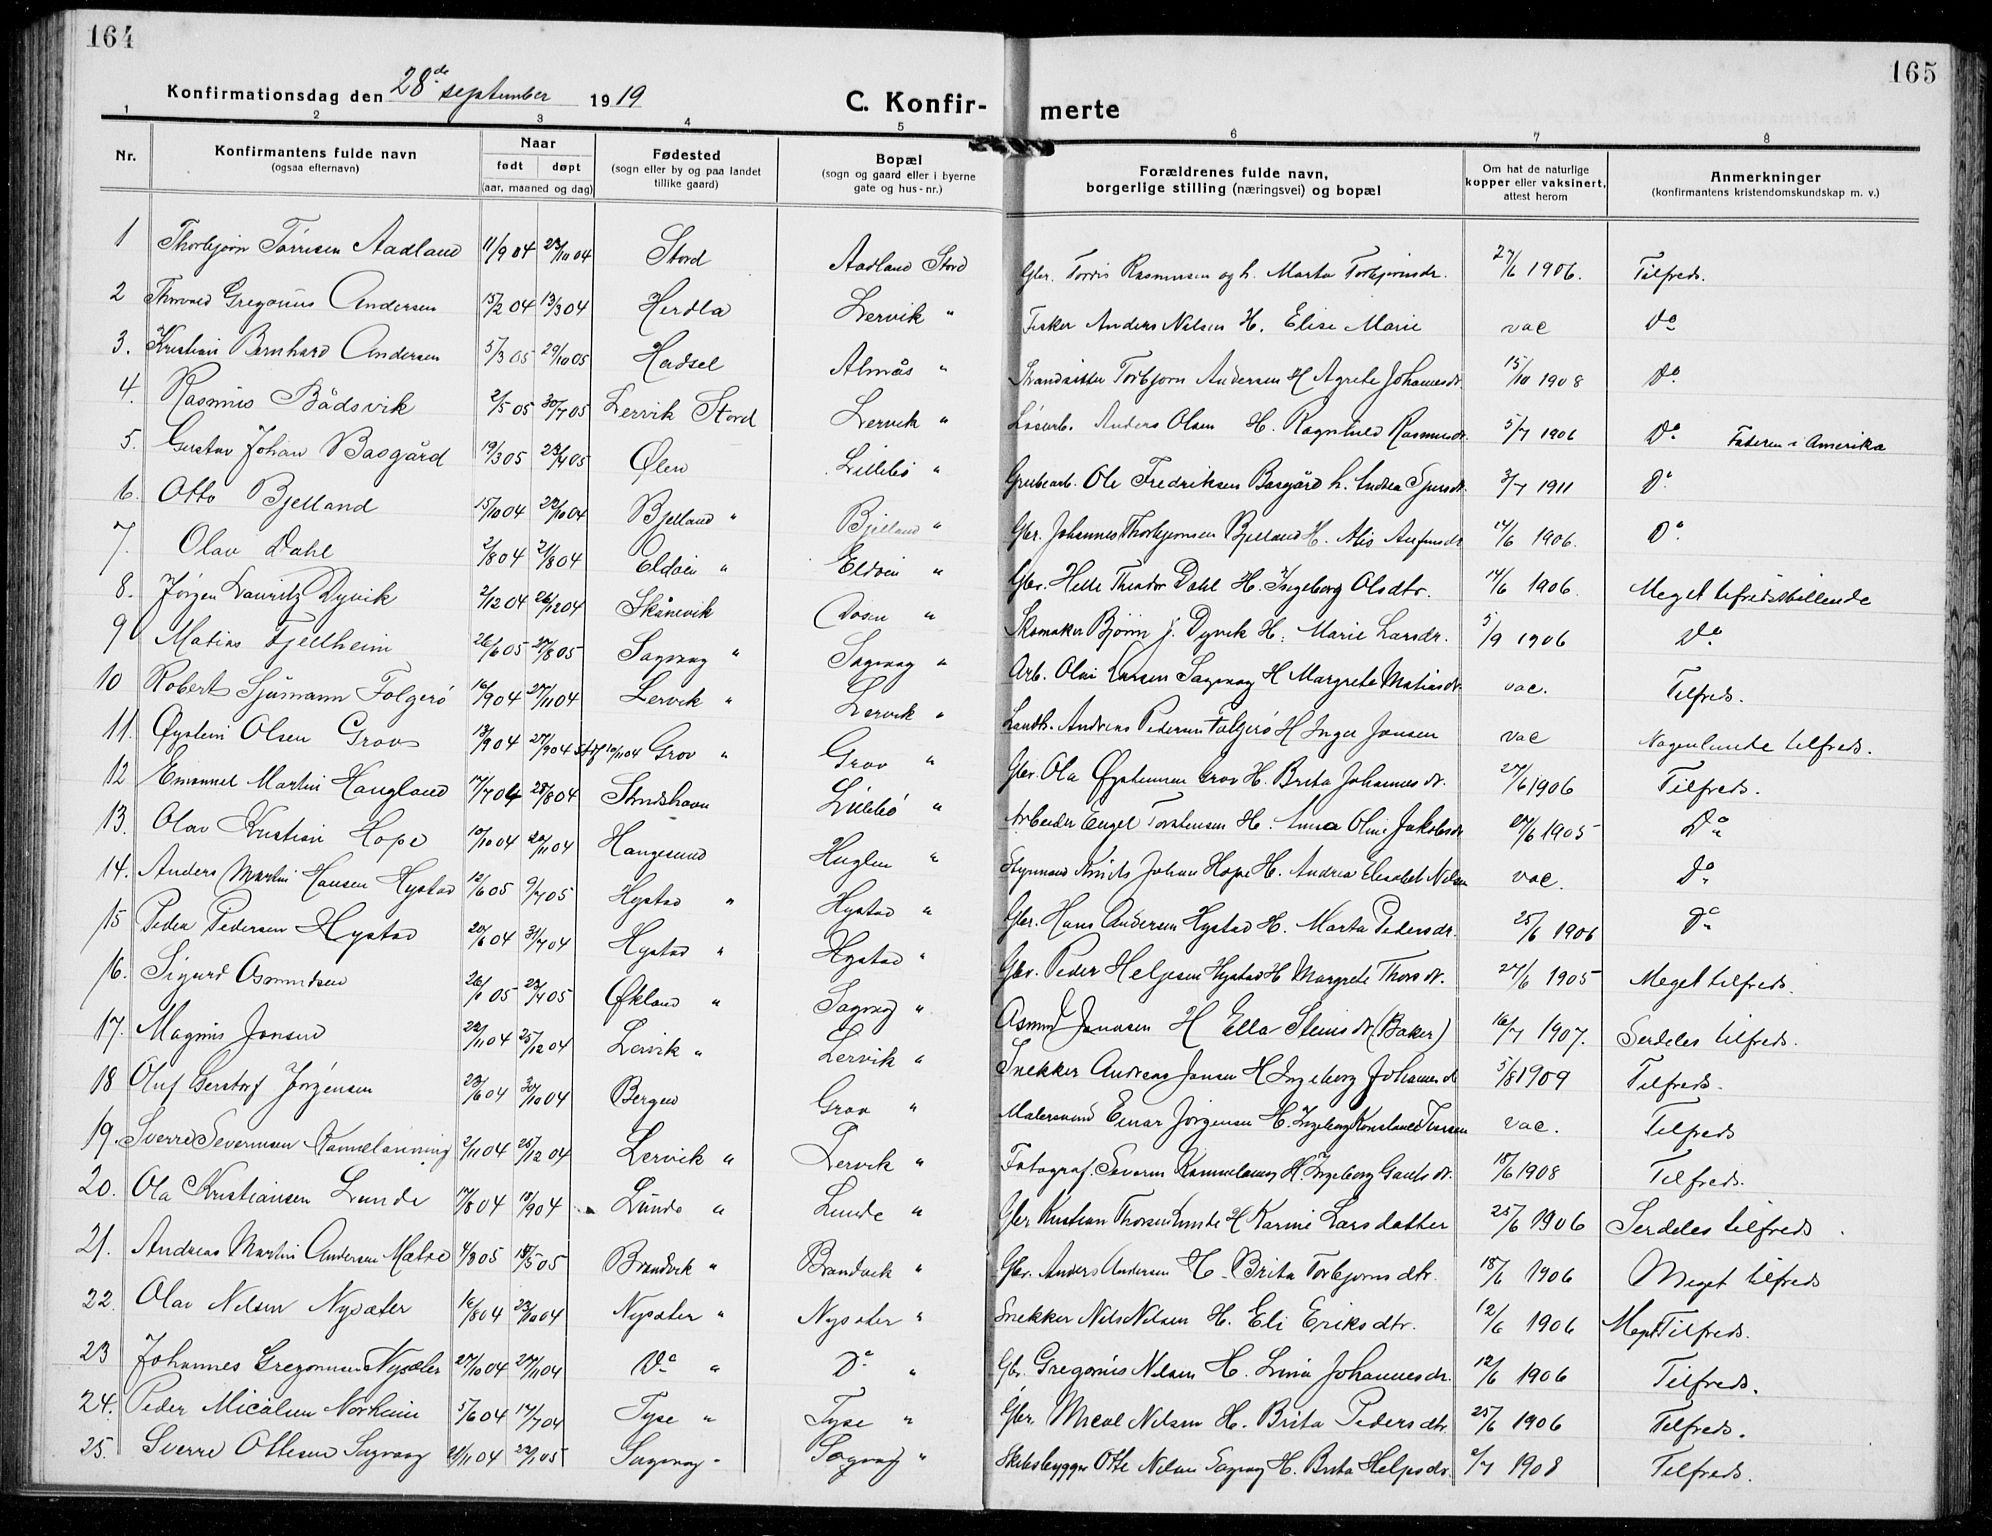 164
165
Konfirmationsdag den 28de september 1919
C. Konfir- merte
1 2 3 4 5 6 7 8
Nr. Konfirmantens fulde navn (ogsaa efternavn) Naar født døpt (aar, maaned og dag) Fødested (sogn eller by og paa landet tillike gaard) Bopæl (sogn og gaard eller i byerne gate og hus-nr.) Forældrenes fulde navn, borgerlige stilling (næringsvei) og bopæl Om hat de naturlige kopper eller vaksinert, attest herom Anmerkninger (konfirmantens kristendomskundskap m. v.)
1 Thorbjørn Tørrisen Aadland 11/9 04 23/10 04 Stord Aadland Stord Gbr. Torris Rasmussen og h. Marta Torbjørnsdr. 27/6 1906. Tilfreds.
2 Thorvald Gregorius Andersen 15/2 04 13/3 04 Herdla Lervik " Fisker Anders Nilsen H. Elise Marie vac Do
3. Kristian Bernhard Andersen 5/3 05 29/10 05 Hadsel Almås " Strandsitter Torbjørn Andersen H Agrete Johannesdr. 15/10 1908 Do
4. Rasmus Bådsvik 2/5 05 30/7 05 Lervik Stord Lervik " Løsarb. Anders Olsen H. Ragnhild Rasmusdr. 5/7 1906 Do Faderen i Amerika
5. Gustav Johan Basgård 19/3 05 23/4 05 Ølen Lillebø " Grubearb. Ole Fredriksen Basgård h. Andrea Sjursdr. 3/7 1911 Do
6. Otto Bjelland 15/10 04 22/10 04 Bjelland " Bjelland " Gbr. Johannes Thorbjørnsen Bjelland H. 14/6 1906. Do
7. Olav Dahl 2/8 04 21/8 04 Eldøen " Eldøen " Gbr. Helle Theodor Dahl H. Ingeborg Olsdtr. 14/6 1906. Meget tilfredsstillende
8. Jørgen Lauritz Dyvik 2/12 04 26/12 04 Skånevik " Skomaker Bjørn J. Dyvik H. Marie Larsdr. 5/9 1906 Do
9 Matias Fjellheim 26/6 05 27/8 05 Sagvag " Sagvag " Arb. Olai Larsen Sagvag H Margrete Matiasdr. vac. Tilfreds.
10 Robert Sjümann Folgerø 16/9 04 27/11 04 Lervik " Lervik " Landh. Andreas Pedersen Folgerø H Inger Jansen vac Nogenlunde tilfreds.
11. Øystein Olsen Grov 13/9 04 27/9 04 stdf 10/11 04 Grov " Grov " Gbr. Ola Øysteinsen Grov H. Brita Johannesdr. 27/6 1906 Tilfreds.
12 Emanuel Martin Haugland 17/7 04 28/8 04 Sundshavn Lillebø " Arbeider Engel Torstensen H. Anna Oline Jakobsdr. 27/6 1905 Do
13. Olav Kristian Hope 10/10 04 20/11 04 Haugesund Huglen " Johan Hope H. Andrea Elisabet Nilsen vac. Do
14. Anders Martin Hansen Hystad 12/6 05 9/7 05 Hystad " Hystad " Gbr. Hans Andersen Hystad H. Marta Pedersdr. 25/6 1906 Do
15 Peder Pedersen Hystad 20/6 04 31/7 04 Hystad " Hystad " Gbr. Peder Helgesen Hystad H Margrete Thorsdr. 27/6 1905 Meget tilfreds.
16. Sigurd Osmundsen 26/1 05 23/4 05 Økland " Sagvag " Osmund Jonasen H Ella Steinsdr (Baker) 16/7 1907. Serdeles tilfreds.
17. Magnus Jansen 22/11 04 25/12 04 Lervik " Lervik " Snekker Andreas Jansen H Ingeborg Johannesdr 5/8 1909 Tilfreds.
18 Oluf Gerstorf Jørgensen 23/6 04 30/10 04 Bergen Grov " Malersvend Einar Jørgensen H. Ingeborg Konstance vac. Tilfreds
19. Sverre Severinsen Kanneløning 2/11 04 25/12 04 Lervik " Lervik " Fotograf. Severin Kanneløning H. Ingeborg Gautsdr. 18/6 1908 Tilfreds.
20. Ola Kristiansen Lunde 17/8 04 18/9 04 Lunde " Lunde " Gbr Kristian Thorsen Lunde H Karine Larsdatter 25/6 1906 Serdeles tilfreds.
21. Andreas Martin Andersen Matre 4/3 05 18/5 05 Brandvik " Brandvik " Gbr. Anders Andersen H. Brita Torbjørnsdtr. 18/6 1906 Meget tilfreds
22. Olav Nilsen Nysæter 16/8 04 23/10 04 Nysæter " Nysæter " Snekker Nils Nilsen H. Eli Eriksdtr. 12/6 1906 Meget Tilfreds.
23 Johannes Gregoriussen Nysæter 27/10 04 27/11 04 Do " Do " Gbr. Gregorius Nilsen H. Lina Johannesdr. 12/6 1906 Tilfreds.
24. Peder Micalsen Norheim 5/6 04 17/7 04 Tyse " Tyse " Gbr. Mical Nilsen H. Brita Pedersdtr. 25/6 1906 Tilfreds.
25. Sverre Ottesen Sagvaag 21/11 04 22/1 05 Sagvag " Sagvag " Skibsbygger Otte Nilsen Sagvag H. Brita Helgesdr. 2/7 1908 Tilfreds.